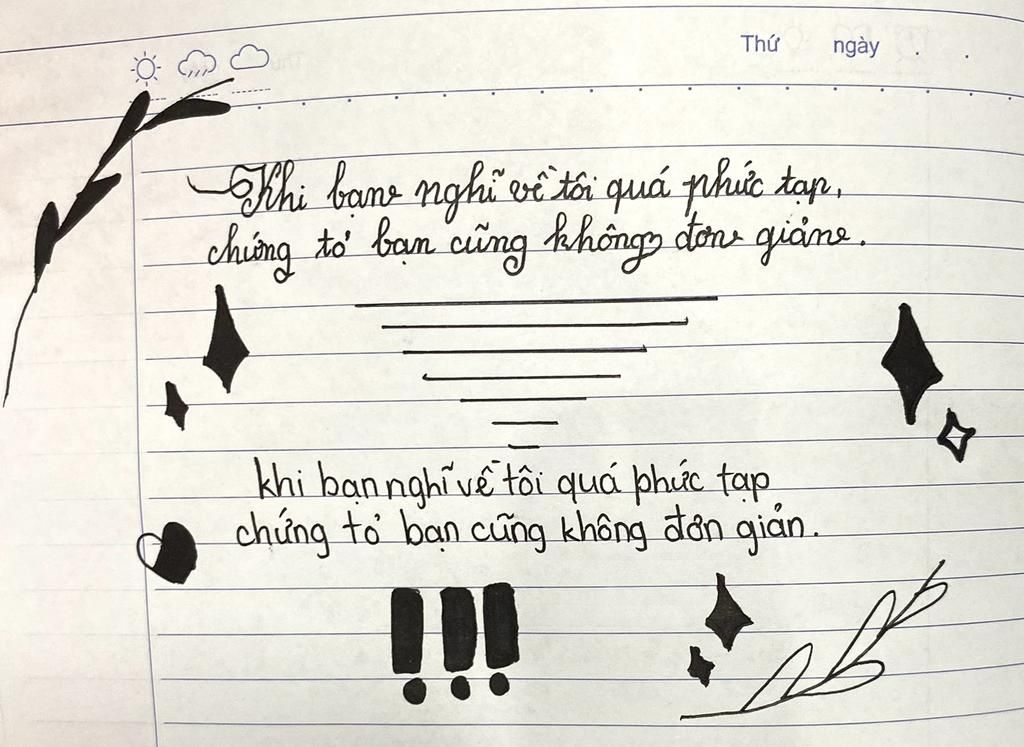 Thứ ngày . .
Khi bạn nghĩ về tôi quá phức tạp,
chứng tỏ bạn cũng không đơn giản.
khi bạn nghĩ về tôi quá phức tạp
chứng tỏ bạn cũng không đơn giản.
!!!